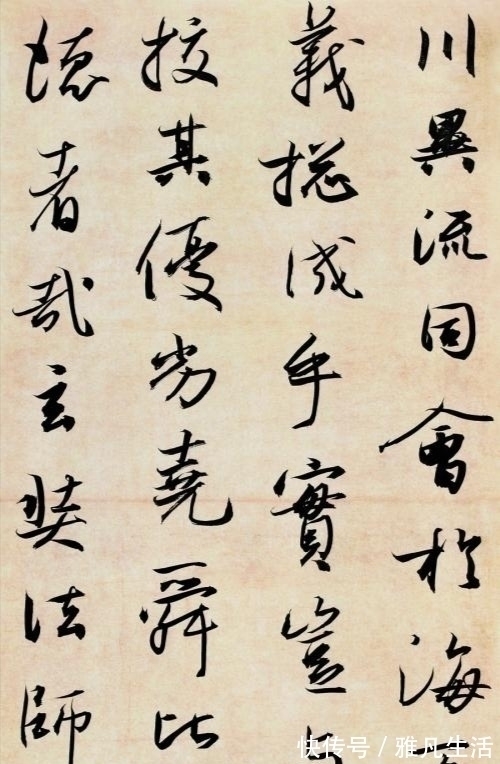 川異流同會於海
義揔成乎實豈
挍其優劣堯舜比
德者哉玄奘法師
快传号 / 雅凡生活